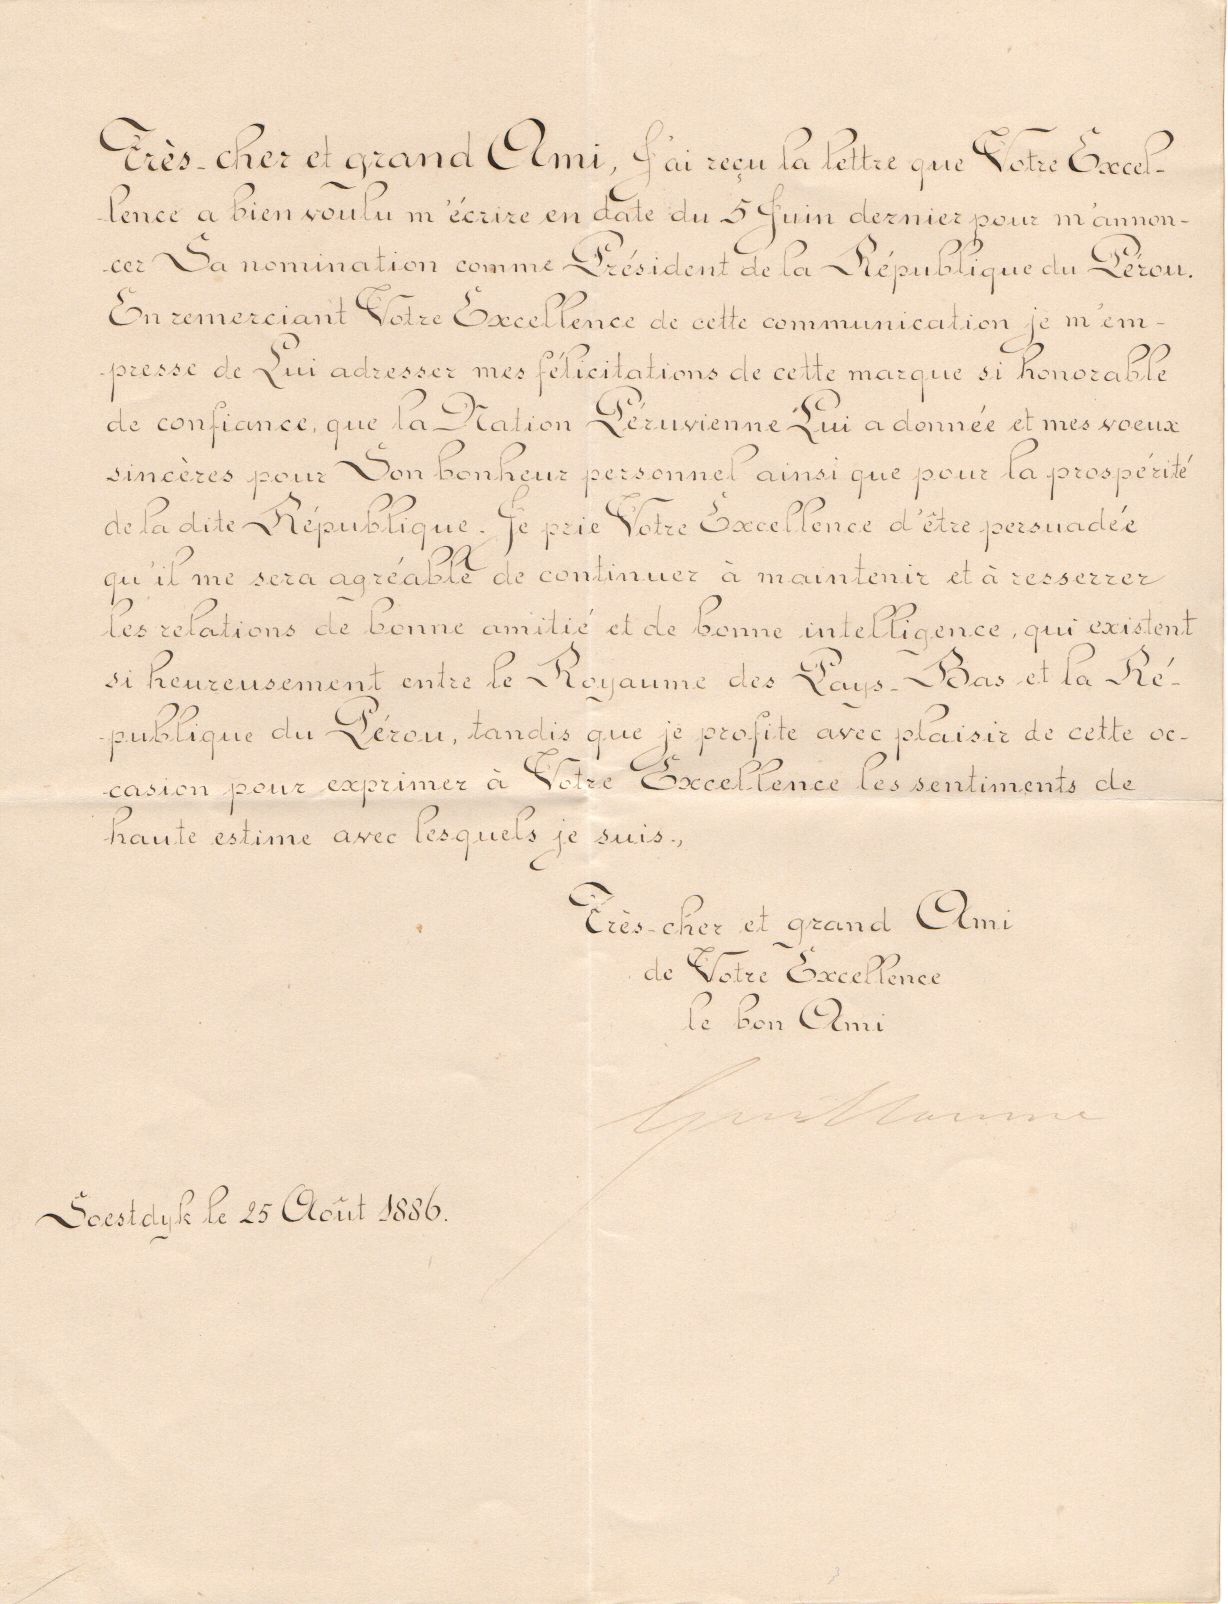 Très-cher et grand Ami, J'ai reçu la lettre que Votre Excel-
lence a bien voulu m'écrire en date du 5 Juin dernier pour m'annon-
cer Sa nomination comme Président de la République du Pérou.
En remerciant Votre Excellence de cette communication je m'em-
presse de Lui adresser mes félicitations de cette marque si honorable
de confiance, que la Nation Péruvienne Lui a donnée et mes voeux
sincères pour Son bonheur personnel ainsi que pour la prospérité
de la dite République. Je prie Votre Excellence d'être persuadée
qu'il me sera agréable de continuer à maintenir et à resserrer
les relations de bonne amitié et de bonne intelligence, qui existent
si heureusement entre le Royaume des Pays-Bas et la Ré-
publique du Pérou, tandis que je profite avec plaisir de cette oc-
casion pour exprimer à Votre Excellence les sentiments de
haute estime avec lesquels je suis.,
Très-cher et grand Ami
de Votre Excellence
le bon Ami
Guillaume
Soestdyk le 25 Août 1886.